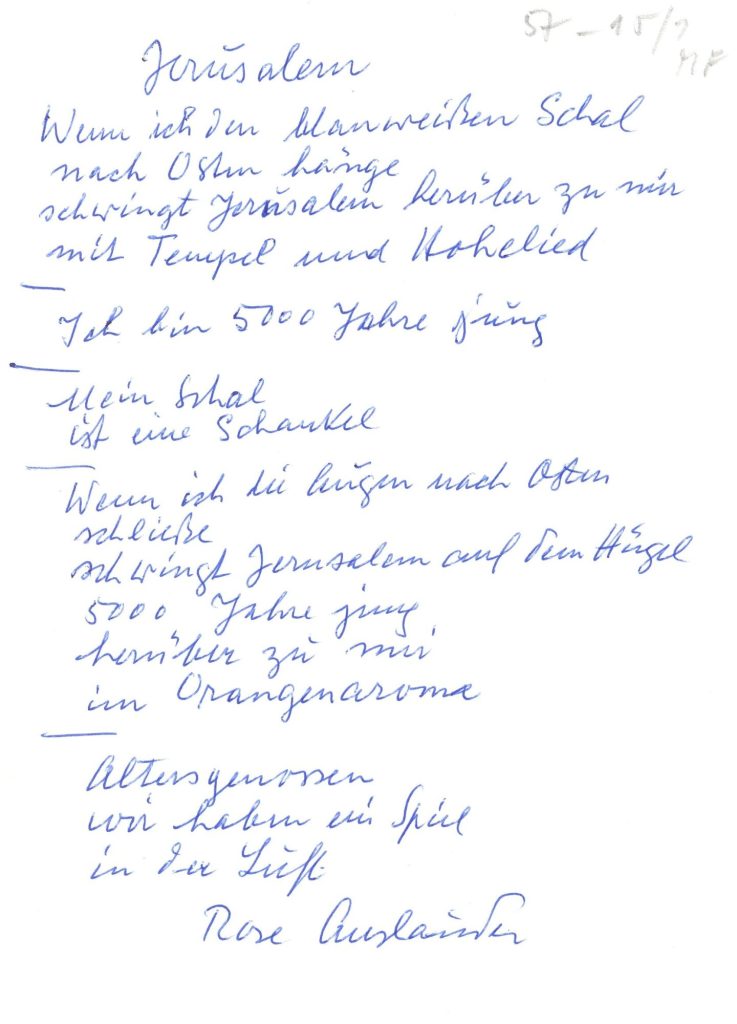 57 - 15/1
MF
Jerusalem
Wenn ich den blauweißen Schal
nach Osten hänge
schwingt Jerusalem herüber zu mir
mit Tempel und Hohelied
Ich bin 5000 Jahre jung
Mein Schal
ist eine Schaukel
Wenn ich die Augen nach Osten
schließe
schwingt Jerusalem auf dem Hügel
5000 Jahre jung
herüber zu mir
im Orangenaroma
Altersgenossen
wir haben ein Spiel
in der Luft
Rose Ausländer